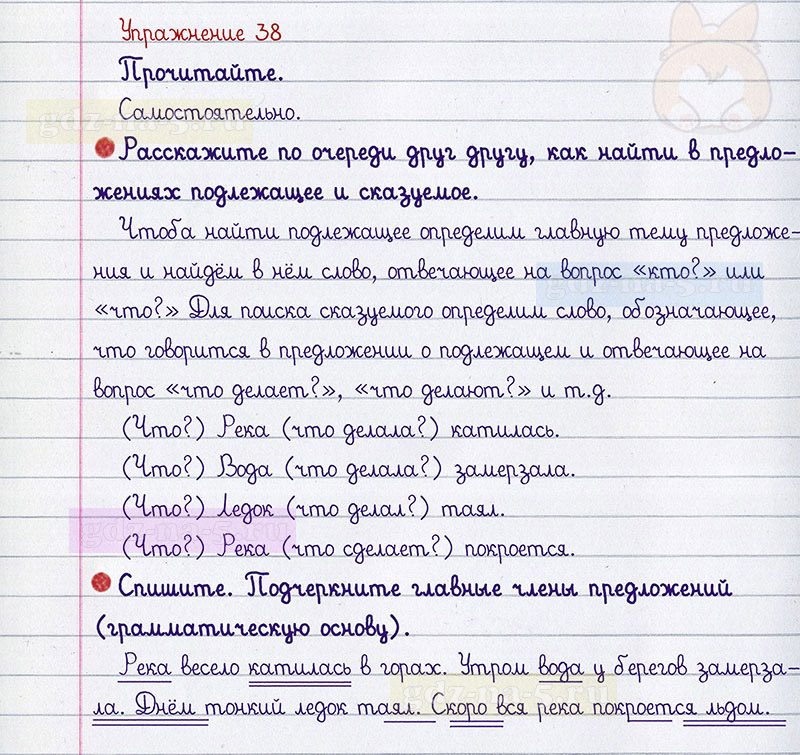 Упражнение 38
Прочитайте.
Самостоятельно.
Расскажите по очереди друг другу, как найти в предло-
жениях подлежащее и сказуемое.
Чтоба найти подлежащее определим главную тему предложе-
ния и найдём в нём слово, отвечающее на вопрос «кто?» или
«что?» Для поиска сказуемого определим слово, обозначающее,
что говорится в предложении о подлежащем и отвечающее на
вопрос «что делает?», «что делают?» и т.д.
(Что?) Река (что делала?) катилась.
(Что?) Вода (что делала?) замерзала.
(Что?) Ледок (что делал?) таял.
(Что?) Река (что сделает?) покроется.
Спишите. Подчеркните главные члены предложений
(грамматическую основу).
Река весело катилась в горах. Утром вода у берегов замерза-
ла. Днём тонкий ледок таял. Скоро вся река покроется льдом.
gdz-na-5.ru
gdz-na-5.ru
gdz-na-5.ru
gdz-na-5.ru